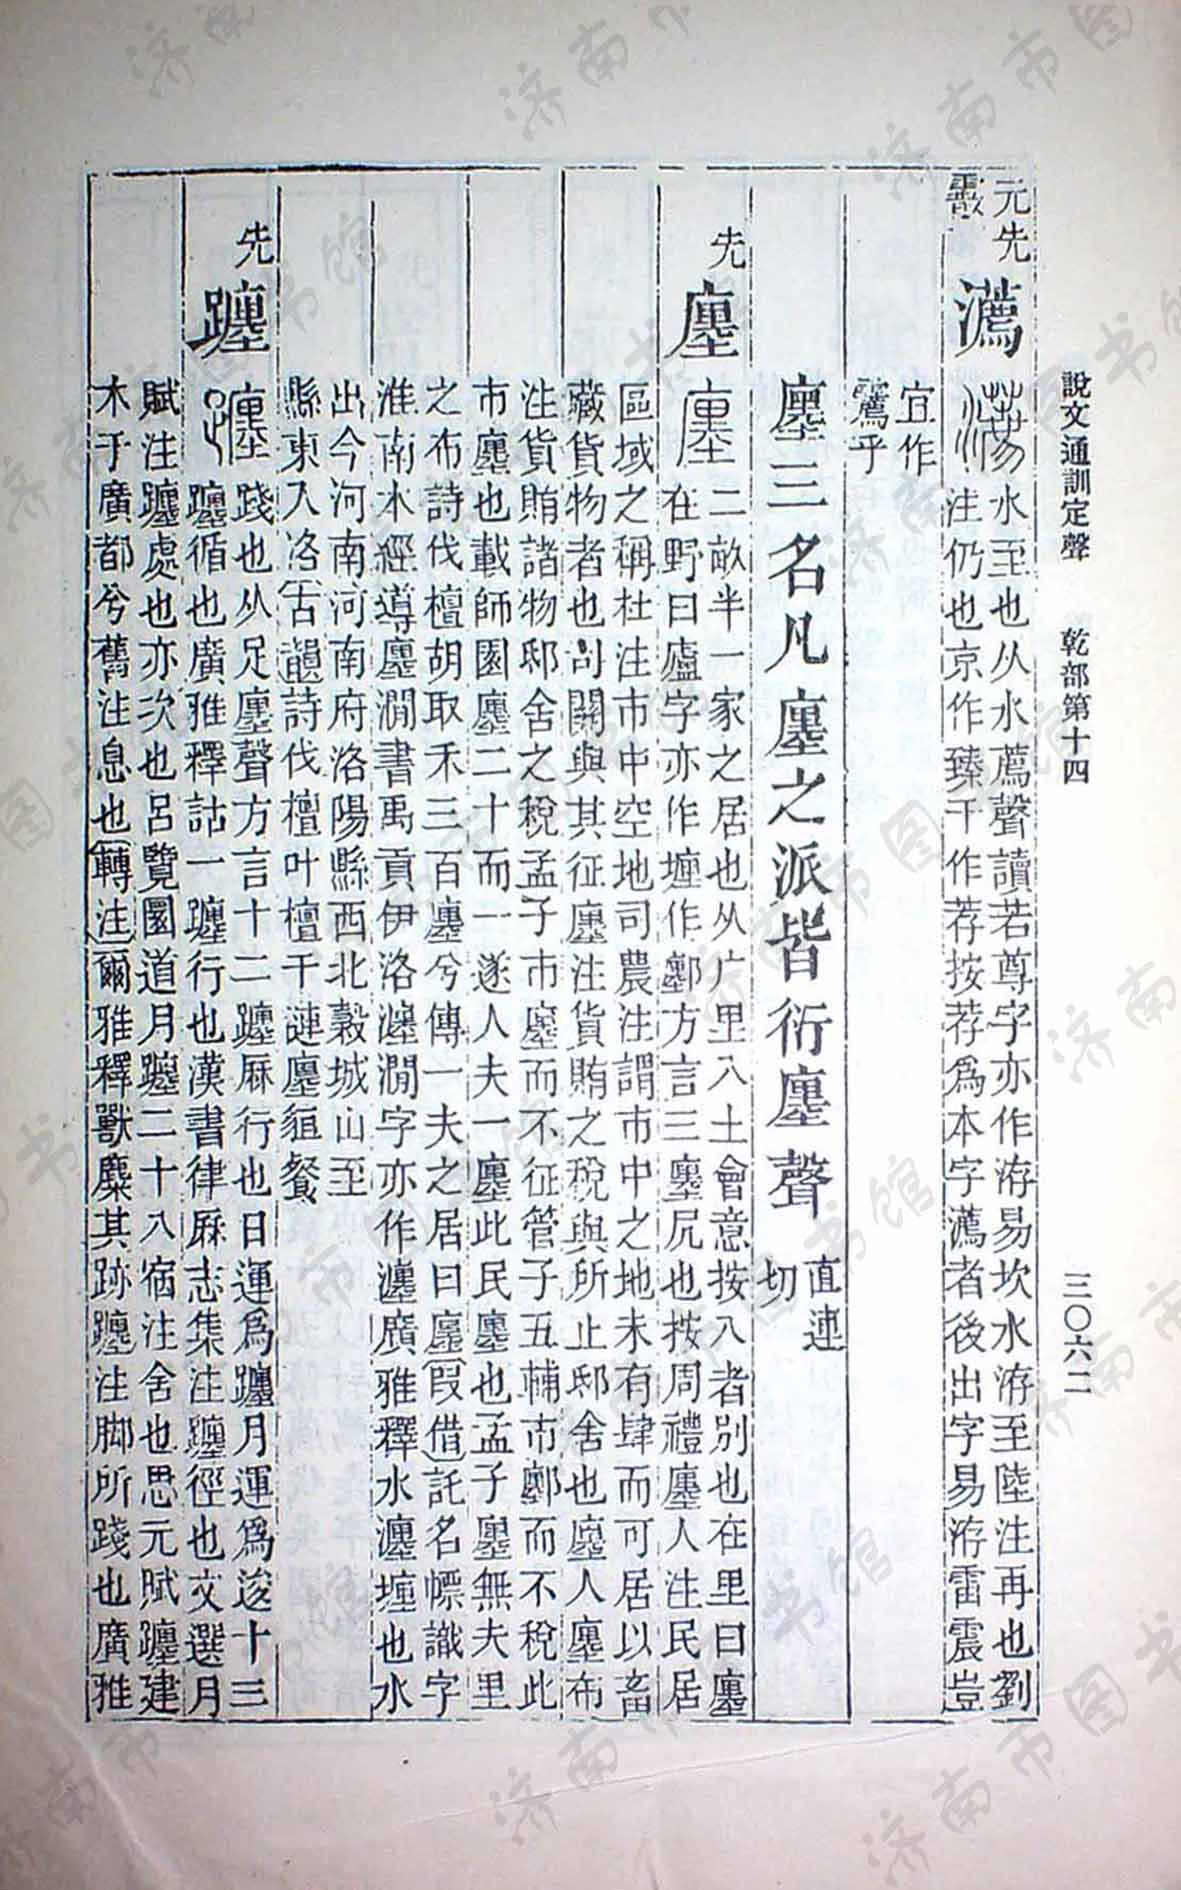 說文通訓定聲　乾部第十四　三〇六二
元先
霰
瀳
水至也从水薦聲讀若尊字亦作洊易坎水洊至陸注再也劉
注仍也京作臻干作荐按荐爲本字瀳者後出字易洊雷震豈
宜作
乎
廛三名凡廛之派皆衍廛聲 直連切
先
廛
二畝半一家之居也从广里八土會意按八者別也在里曰廛
在野曰廬字亦作壥作鄽方言三廛尻也按周禮廛人注民居
區域之稱杜注市中空地司農注謂市中之地未有肆而可居以畜
藏貨物者也司關與其征廛注貨賄之稅與所止邸舍也廛人廛布
注貨賄諸物邸舍之稅孟子市廛而不征管子五輔市鄽而不稅此
市廛也載師園廛二十而一遂人夫一廛此民廛也孟子廛無夫里
之布詩伐檀胡取禾三百廛兮傳一夫之居曰廛〔叚借〕託名幖識字
淮南本經導廛澗書禹貢伊洛瀍澗字亦作瀍廣雅釋水瀍壥也水
出今河南河南府洛陽縣西北穀城山至
縣東入洛〔古韻〕詩伐檀叶檀干漣廛貆餐
先
躔
踐也从足廛聲方言十二躔厤行也日運爲躔月運爲逡十三
躔循也廣雅釋詁一躔行也漢書律厤志集注躔徑也文選月
賦注躔處也亦次也呂覽圜道月躔二十八宿注舍也思元賦躔建
木于廣都兮舊注息也〔轉注〕爾雅釋獸麋其跡躔注脚所踐也廣雅